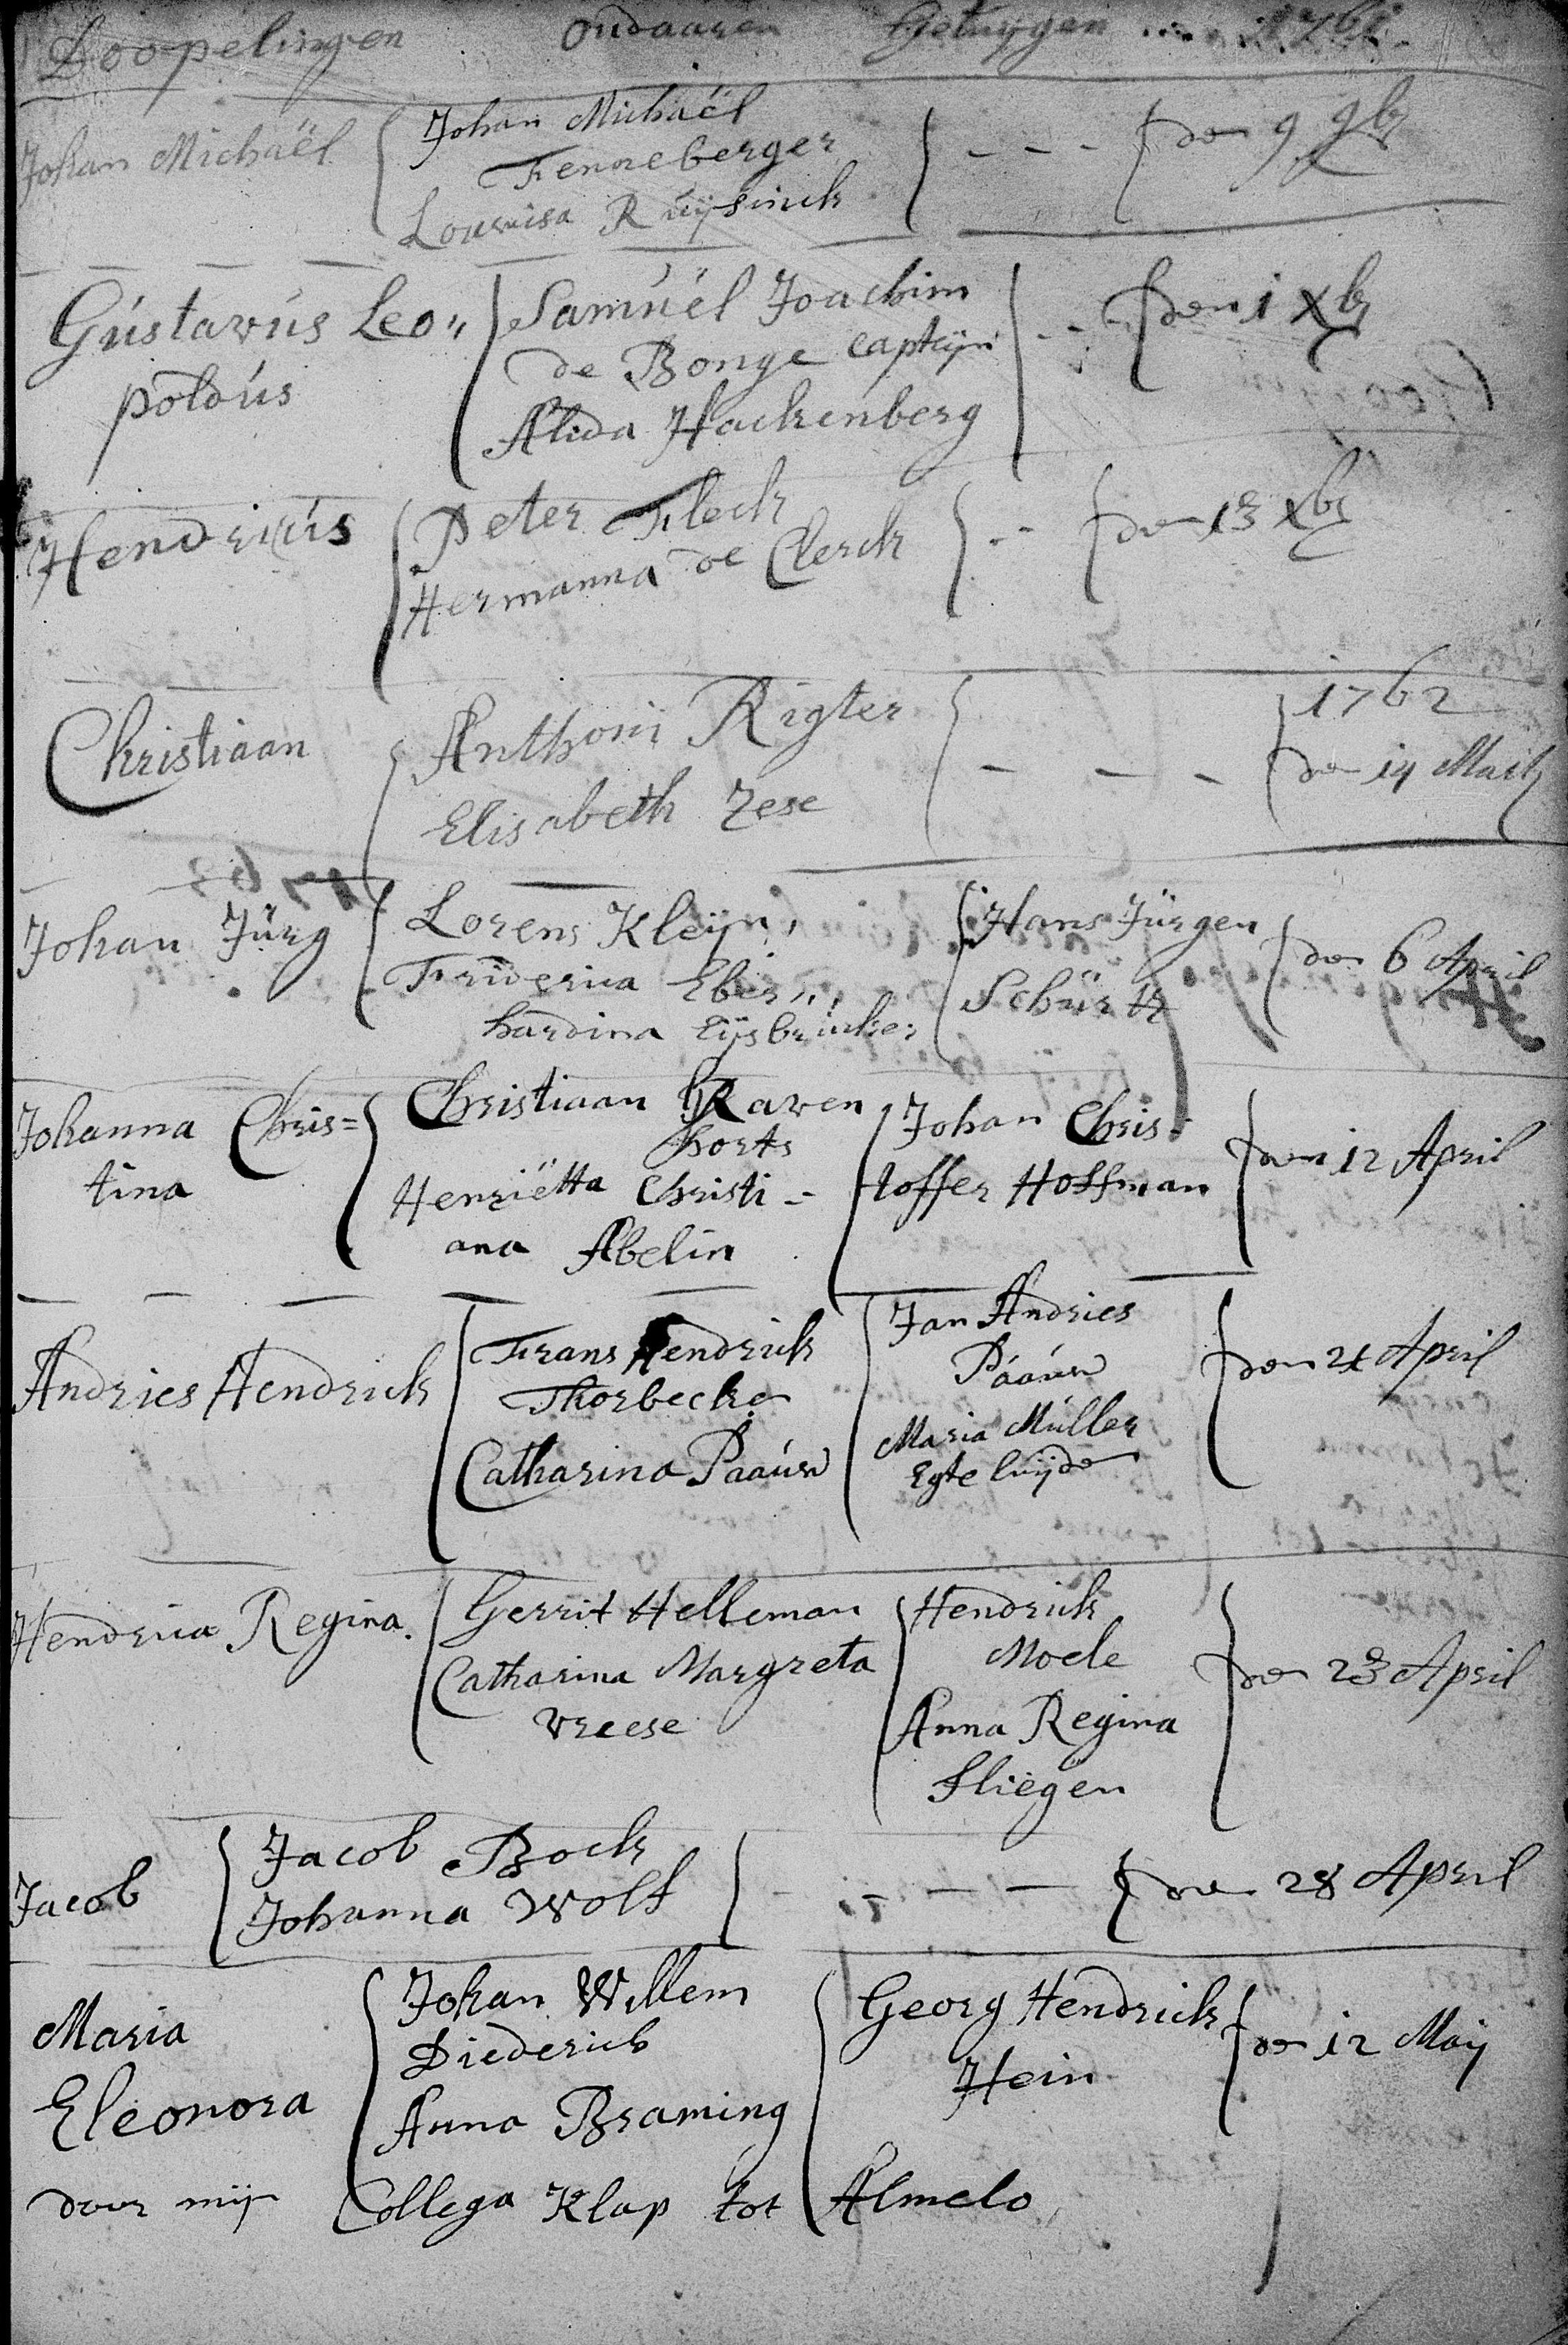 Doopelingen Oudaaren Getuijgen 1761
Johan Michaël
Johan Michaël
Fenneberger
Louwisa Ruijsinck
den 9 9br
Gústavús Leo"
poldús
Samúël Joachim
de Bonge captijn
Alida Hackenberg
den 1 Xbr
Hendricús
Peter Fleck
Hermanna de Clerck
den 13 Xbr
Christiaan
Anthonij Rigter
Elisabeth Zese
1762
den 14 Martz
Johan Jürg
Lorens Kleijn
Friderica Eber"
hardina Eijsbrücker
Hans Jürgen
Schürtz
den 6 April
Johanna Chris=
tina
Christiaan Raven
horts
Henriëtta Christi-
ana Abelin
Johan Chris-
toffer Hoffman
den 12 April
Andries Hendrick
Frans Hendrick
Thorbecke
Catharina Paaúw
Jan Andries
Paaúw
Maria Múller
Egte luijde
den 21 April
Hendrica Regina.
Gerrit Helleman
Catharina Margreta
Vreese
Hendrick
Moele
Anna Regina
Fliegen
den 23 April
Jacob
Jacob Bock
Johanna Wolf
den 28 April
Maria
Eleonora
Johan Willem
Diederich
Anna Braming
Georg Hendrick
Hein
den 12 Maij
door mijn Collega Klap tot Almelo